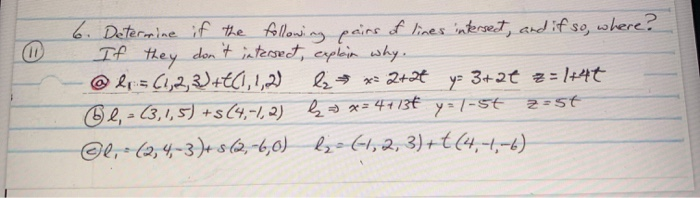 6. Determine if the following pairs of lines intersect, and if so, where?
(11) If they don't intersect, explain why.
(a) l₁ = (1,2,3)+t(1,1,2) l₂ ⇒ x= 2+2t y= 3+2t z=1+4t
(b) l₁ = (3,1,5) +s(4,-1,2) l₂ ⇒ x=4+13t y=1-5t z=5t
(c) l₁ = (2,4,-3)+s(2,-6,0) l₂=(-1,2,3)+t(4,-1,-6)